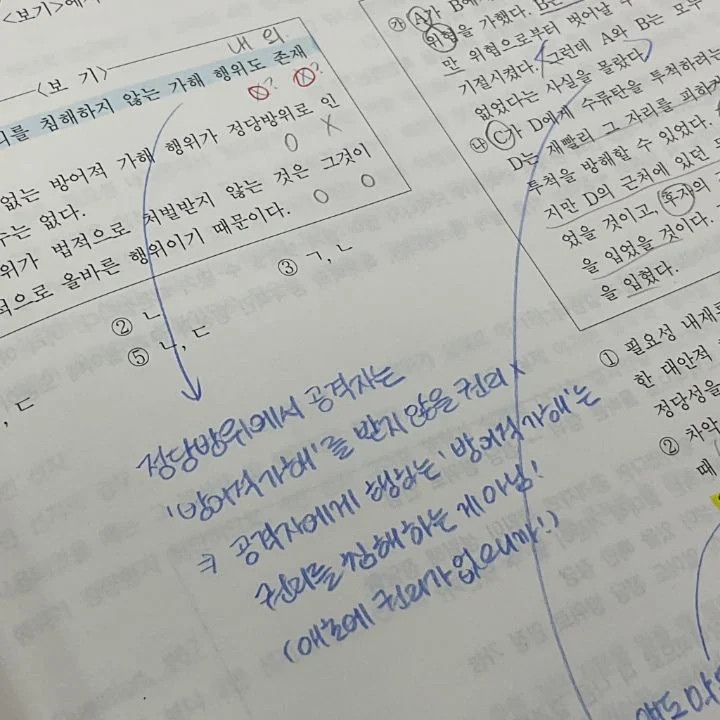 <보기>에
<보 기>
내 의
리를 침해하지 않는 가해 행위도 존재
X? X?
없는 방어적 가해 행위가 정당방위로 인
O X
수는 없다.
위가 법적으로 처벌받지 않는 것은 그것이
적으로 올바른 행위이기 때문이다.
O O
② ㄴ
③ ㄱ, ㄴ
, ㄷ
⑤ ㄴ, ㄷ
정당방위에서 공격자는
'방어적 가해'를 받지 않을 권리 X
⇒ 공격자에게 행하는 '방어적 가해'는
권리를 침해하는 게 아님!
(애초에 권리가 없으니까!)
㉮ A가 B에
위협을 가했다. B는
만 위험으로부터 벗어날 수
기절시켰다. 그런데 A와 B는 모두
없었다는 사실을 몰랐다.
㉯ C가 D에게 수류탄을 투척하려는
D는 재빨리 그 자리를 피하거
투척을 방해할 수 있었다.
지만 D의 근처에 있던
었을 것이고, 후자의
을 입었을 것이다.
을 입혔다.
① 필요성 내재
한 대안적
정당성을
② 차악
때